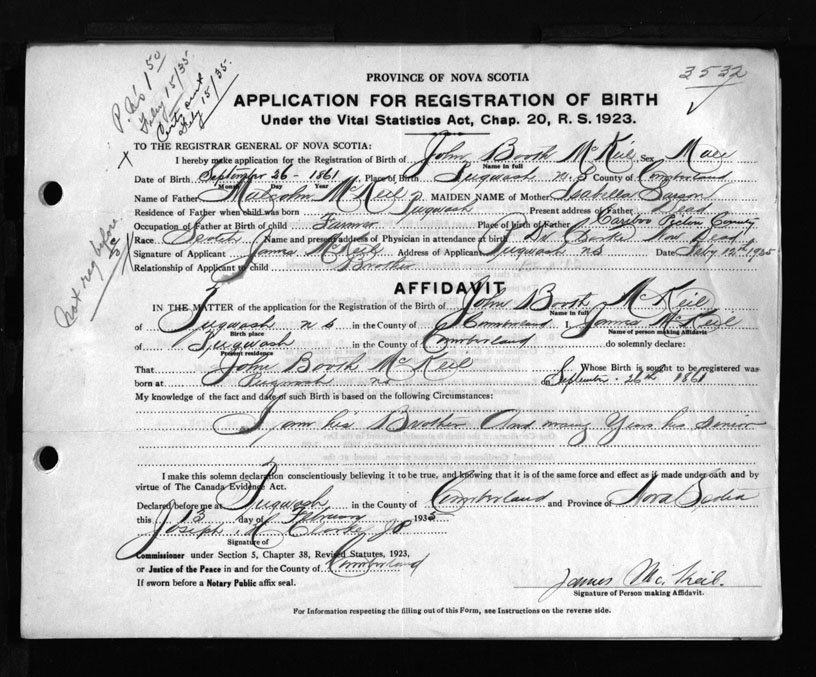 3532
P.O's 1 50
Feby 15/35
Cert sent
Feby 15/35.
PROVINCE OF NOVA SCOTIA
APPLICATION FOR REGISTRATION OF BIRTH
Under the Vital Statistics Act, Chap. 20, R. S. 1923.
TO THE REGISTRAR GENERAL OF NOVA SCOTIA:
I hereby make application for the Registration of Birth of John Booth McKeil Sex Male
Name in full
Date of Birth September 26 - 1861 Place of Birth Pugwash N.S County of Cumberland
Month Day Year
Name of Father Malcolm McKeil MAIDEN NAME of Mother Isabella
Residence of Father when child was born Pugwash Present address of Father Dead
Occupation of Father at Birth of child Farmer Place of birth of Father Cariboo Pictou County
Race Scotch Name and present address of Physician in attendance at birth Dr Now Dead
Signature of Applicant James McKeil Address of Applicant Pugwash NS Date Feby 12th 1935
Relationship of Applicant to child Brother
Not reg before
AFFIDAVIT
IN THE MATTER of the application for the Registration of the Birth of John Booth McKeil
Name in full
of Pugwash N S in the County of Cumberland I, James McKeil
Birth place Name of person making Affidavit
of Pugwash in the County of Cumberland do solemnly declare:
Present residence
That John Booth McKeil Whose Birth is sought to be registered was
born at Pugwash NS on September 26th 1861
My knowledge of the fact and date of such Birth is based on the following Circumstances:
I am his Brother And many Years his Senior
I make this solemn declaration conscientiously believing it to be true, and knowing that it is of the same force and effect as if made under oath and by
virtue of The Canada Evidence Act.
Declared before me at Pugwash in the County of Cumberland and Province of Nova Scotia
this 13 day of February 1935
Joseph Clarke JP
Signature of
Commissioner under Section 5, Chapter 38, Revised Statutes, 1923,
or Justice of the Peace in and for the County of Cumberland
If sworn before a Notary Public affix seal.
James Mc. Keil.
Signature of Person making Affidavit.
For Information respecting the filling out of this Form, see Instructions on the reverse side.